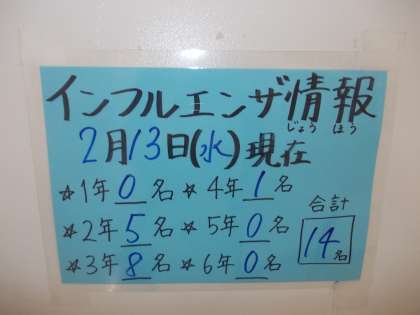 インフルエンザ情報
じょう ほう
2月13日(水)現在
☆1年0名 ☆4年1名
☆2年5名 ☆5年0名
☆3年8名 ☆6年0名
合計
14名